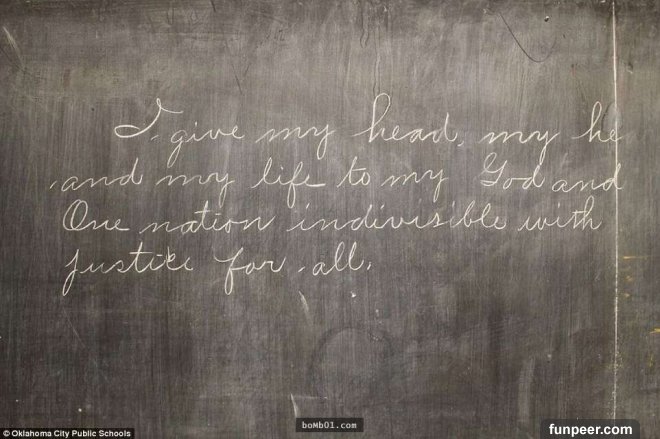 I give my head, my he
and my life to my God and
One nation indivisible with
justice for all.
© Oklahoma City Public Schools
boMb01.com
funpeer.com